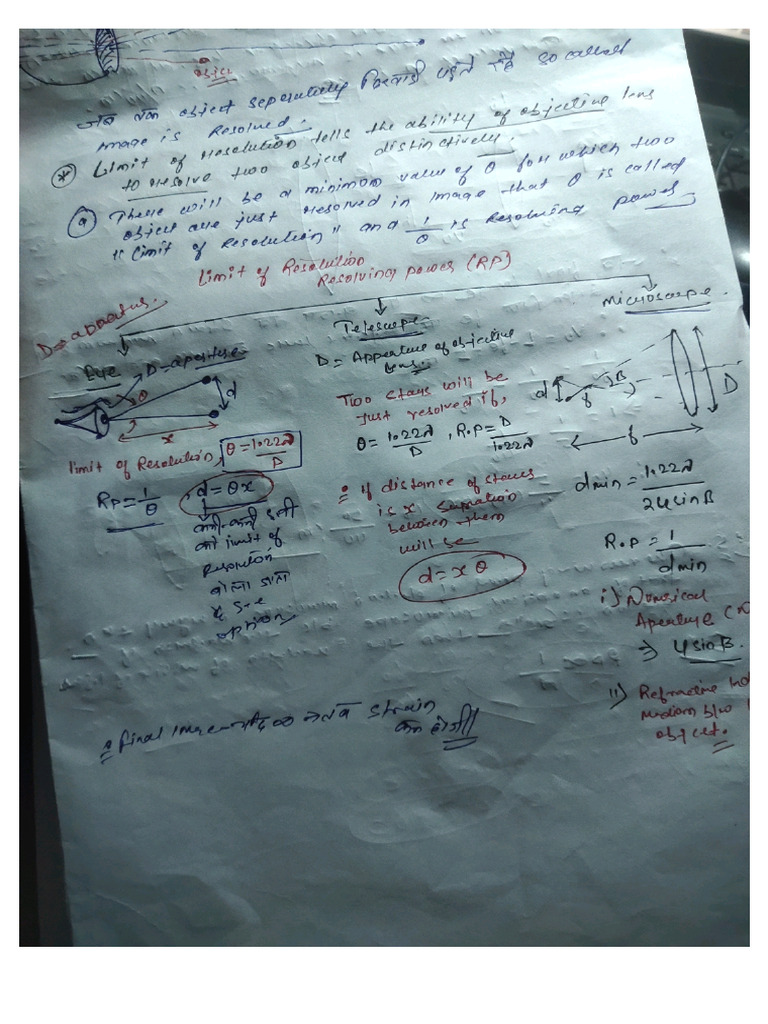 object
जब तक object seperately दिखाई पड़ते हैं so called
image is Resolved.
* Limit of resolution tells the ability of objective lens
to resolve two object distinctively.
(a) There will be a minimum value of θ for which two
object are just resolved in image that θ is called
"Limit of Resolution" and 1/θ is Resolving power
Limit of Resolution
Resolving power (RP)
Eye
D = aperture
θ
d
x
limit of Resolution, θ = 1.22λ/D
RP = 1/θ , d = θx
कभी-कभी इसी
को limit of
Resolution
बोला जाता
option
Telescope
D = Apperture of objective
lens.
Two stars will be
just resolved if,
θ = 1.22λ/D , R.P = D/1.22λ
if distance of stars
is x
between them
will be
d = x θ
Microscope
d
β
f
D
f
dmin = 1.22λ/2μsinβ
R.P = 1/dmin
i) Numerical
Aperture
⇒ μsinβ.
ii) Refractive
medium b/w
object.
strain
कम होगी